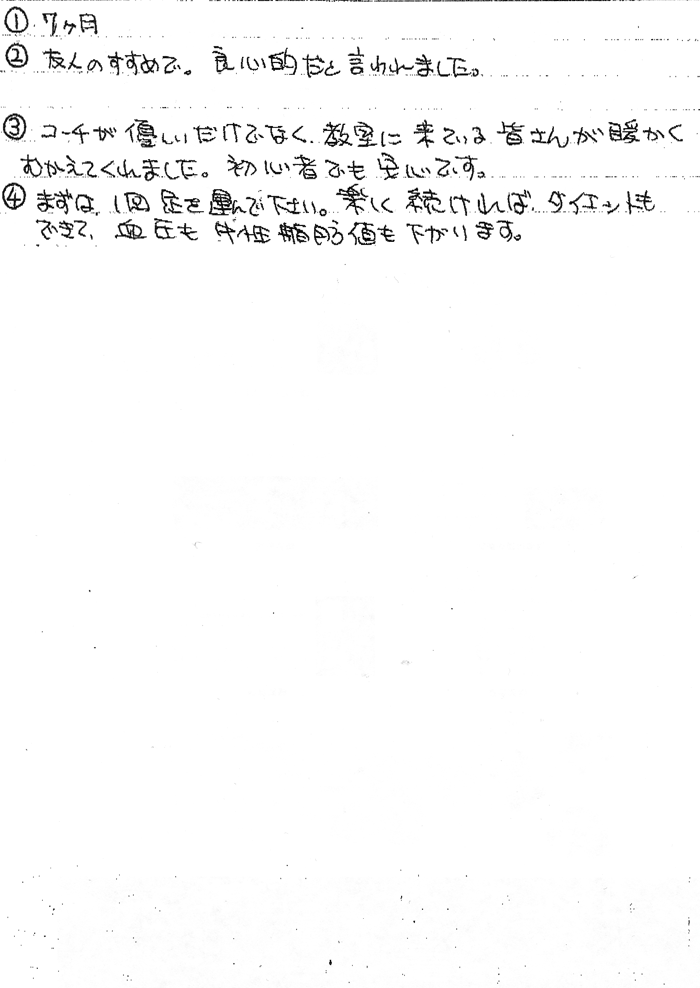 ① 7ヶ月
② 友人のすすめで。良心的だと言われました。
③ コーチが優しいだけでなく、教室に来ている皆さんが暖かく
むかえてくれました。初心者でも安心です。
④ まずは、1回足を運んで下さい。楽しく続ければ、ダイエットも
できて、血圧も中性脂肪値も下がります。